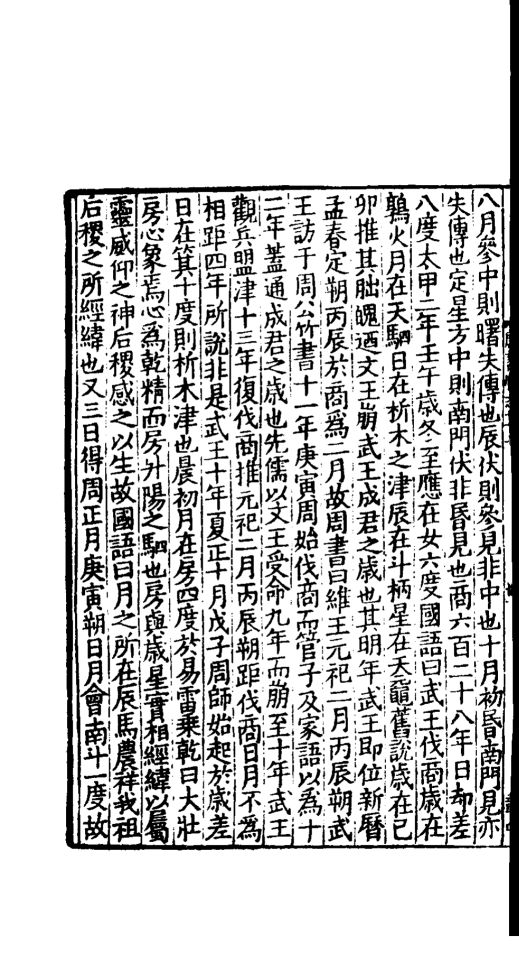 八月參中則曙失傳也辰伏則參見非中也十月初昏南門見亦
失傳也定星方中則南門伏非昬見也商六百二十八年日却差
八度太甲二年壬午歲冬至應在女六度國語曰武王伐商歲在
鶉火月在天駟日在析木之津辰在斗柄星在天黿舊說歲在己
卯推其朏魄迺文王崩武王成君之歲也其明年武王即位新曆
孟春定朔丙辰於商爲二月故周書曰維王元祀二月丙辰朔武
王訪于周公竹書十一年庚寅周始伐商而管子及家語以爲十
二年蓋通成君之歲也先儒以文王受命九年而崩至十年武王
觀兵盟津十三年復伐商推元祀二月丙辰朔距伐商日月不爲
相距四年所說非是武王十年夏正十月戊子周師始起於歲差
日在箕十度則析木津也晨初月在房四度於易雷乘乾曰大壯
房心象焉心爲乾精而房升陽之駟也房與歲星實相經緯以屬
靈威仰之神后稷感之以生故國語曰月之所在辰馬農祥我祖
后稷之所經緯也又三日得周正月庚寅朔日月會南斗一度故